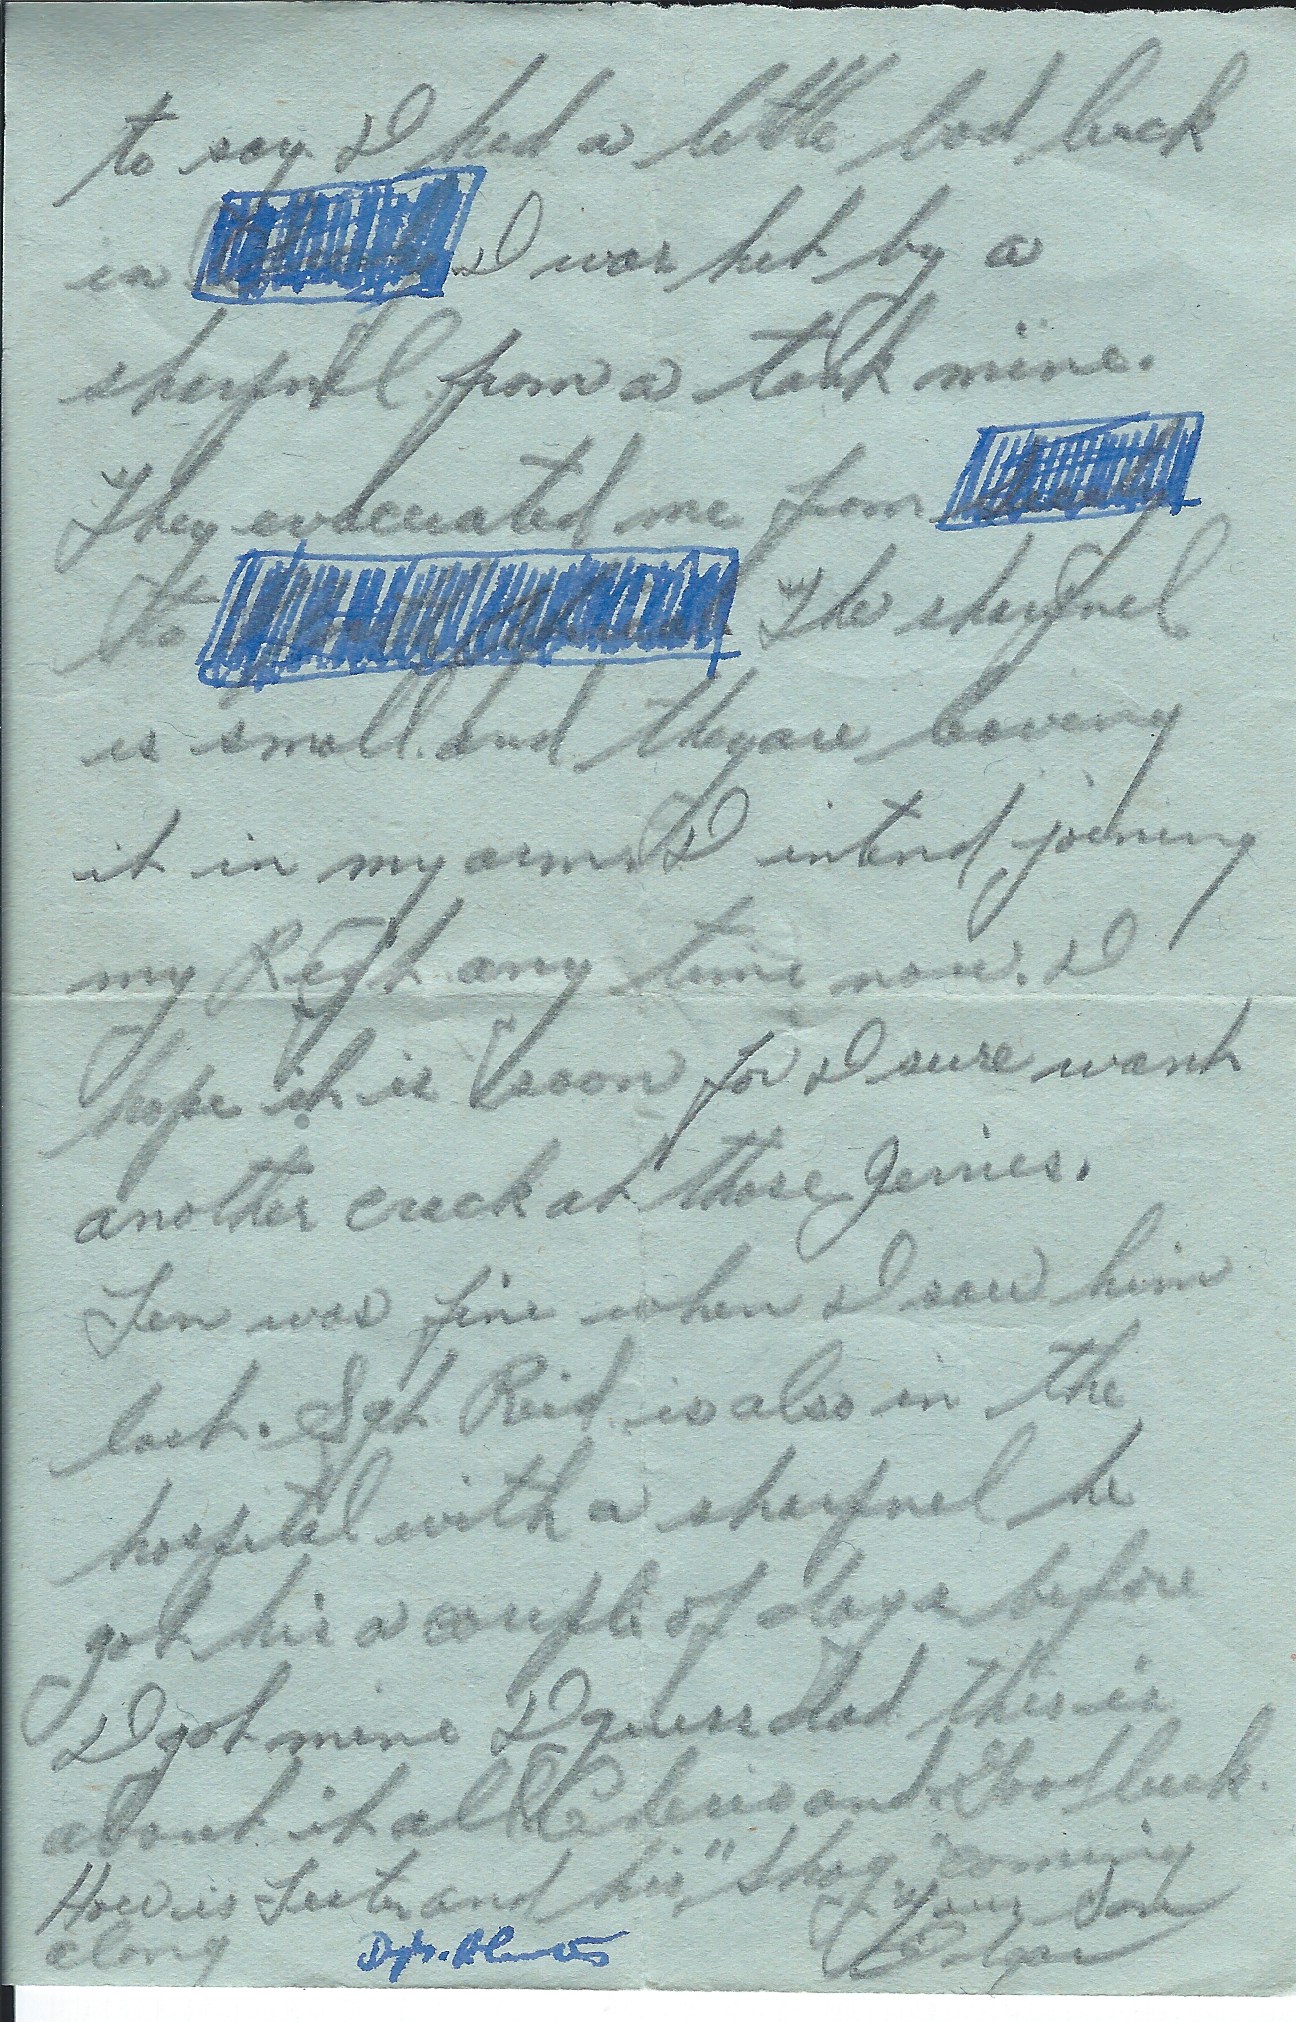 to say I had a little bad luck
in I was hit by a
sherpnel from a tank mine.
They evacuated me from
to The sherpnel
is small and they are leaving
it in my arm. I intend joining
my Regt any time now. I
hope it is soon for I sure want
another crack at those Jerries.
Len was fine when I saw him
last. Sgt Reid is also in the
hospital with a sherpnel he
got his a couple of days before
I got mine I guess Dad this is
about it all Cheerio and Good luck.
How is and his "Shag" coming
along
Your Son